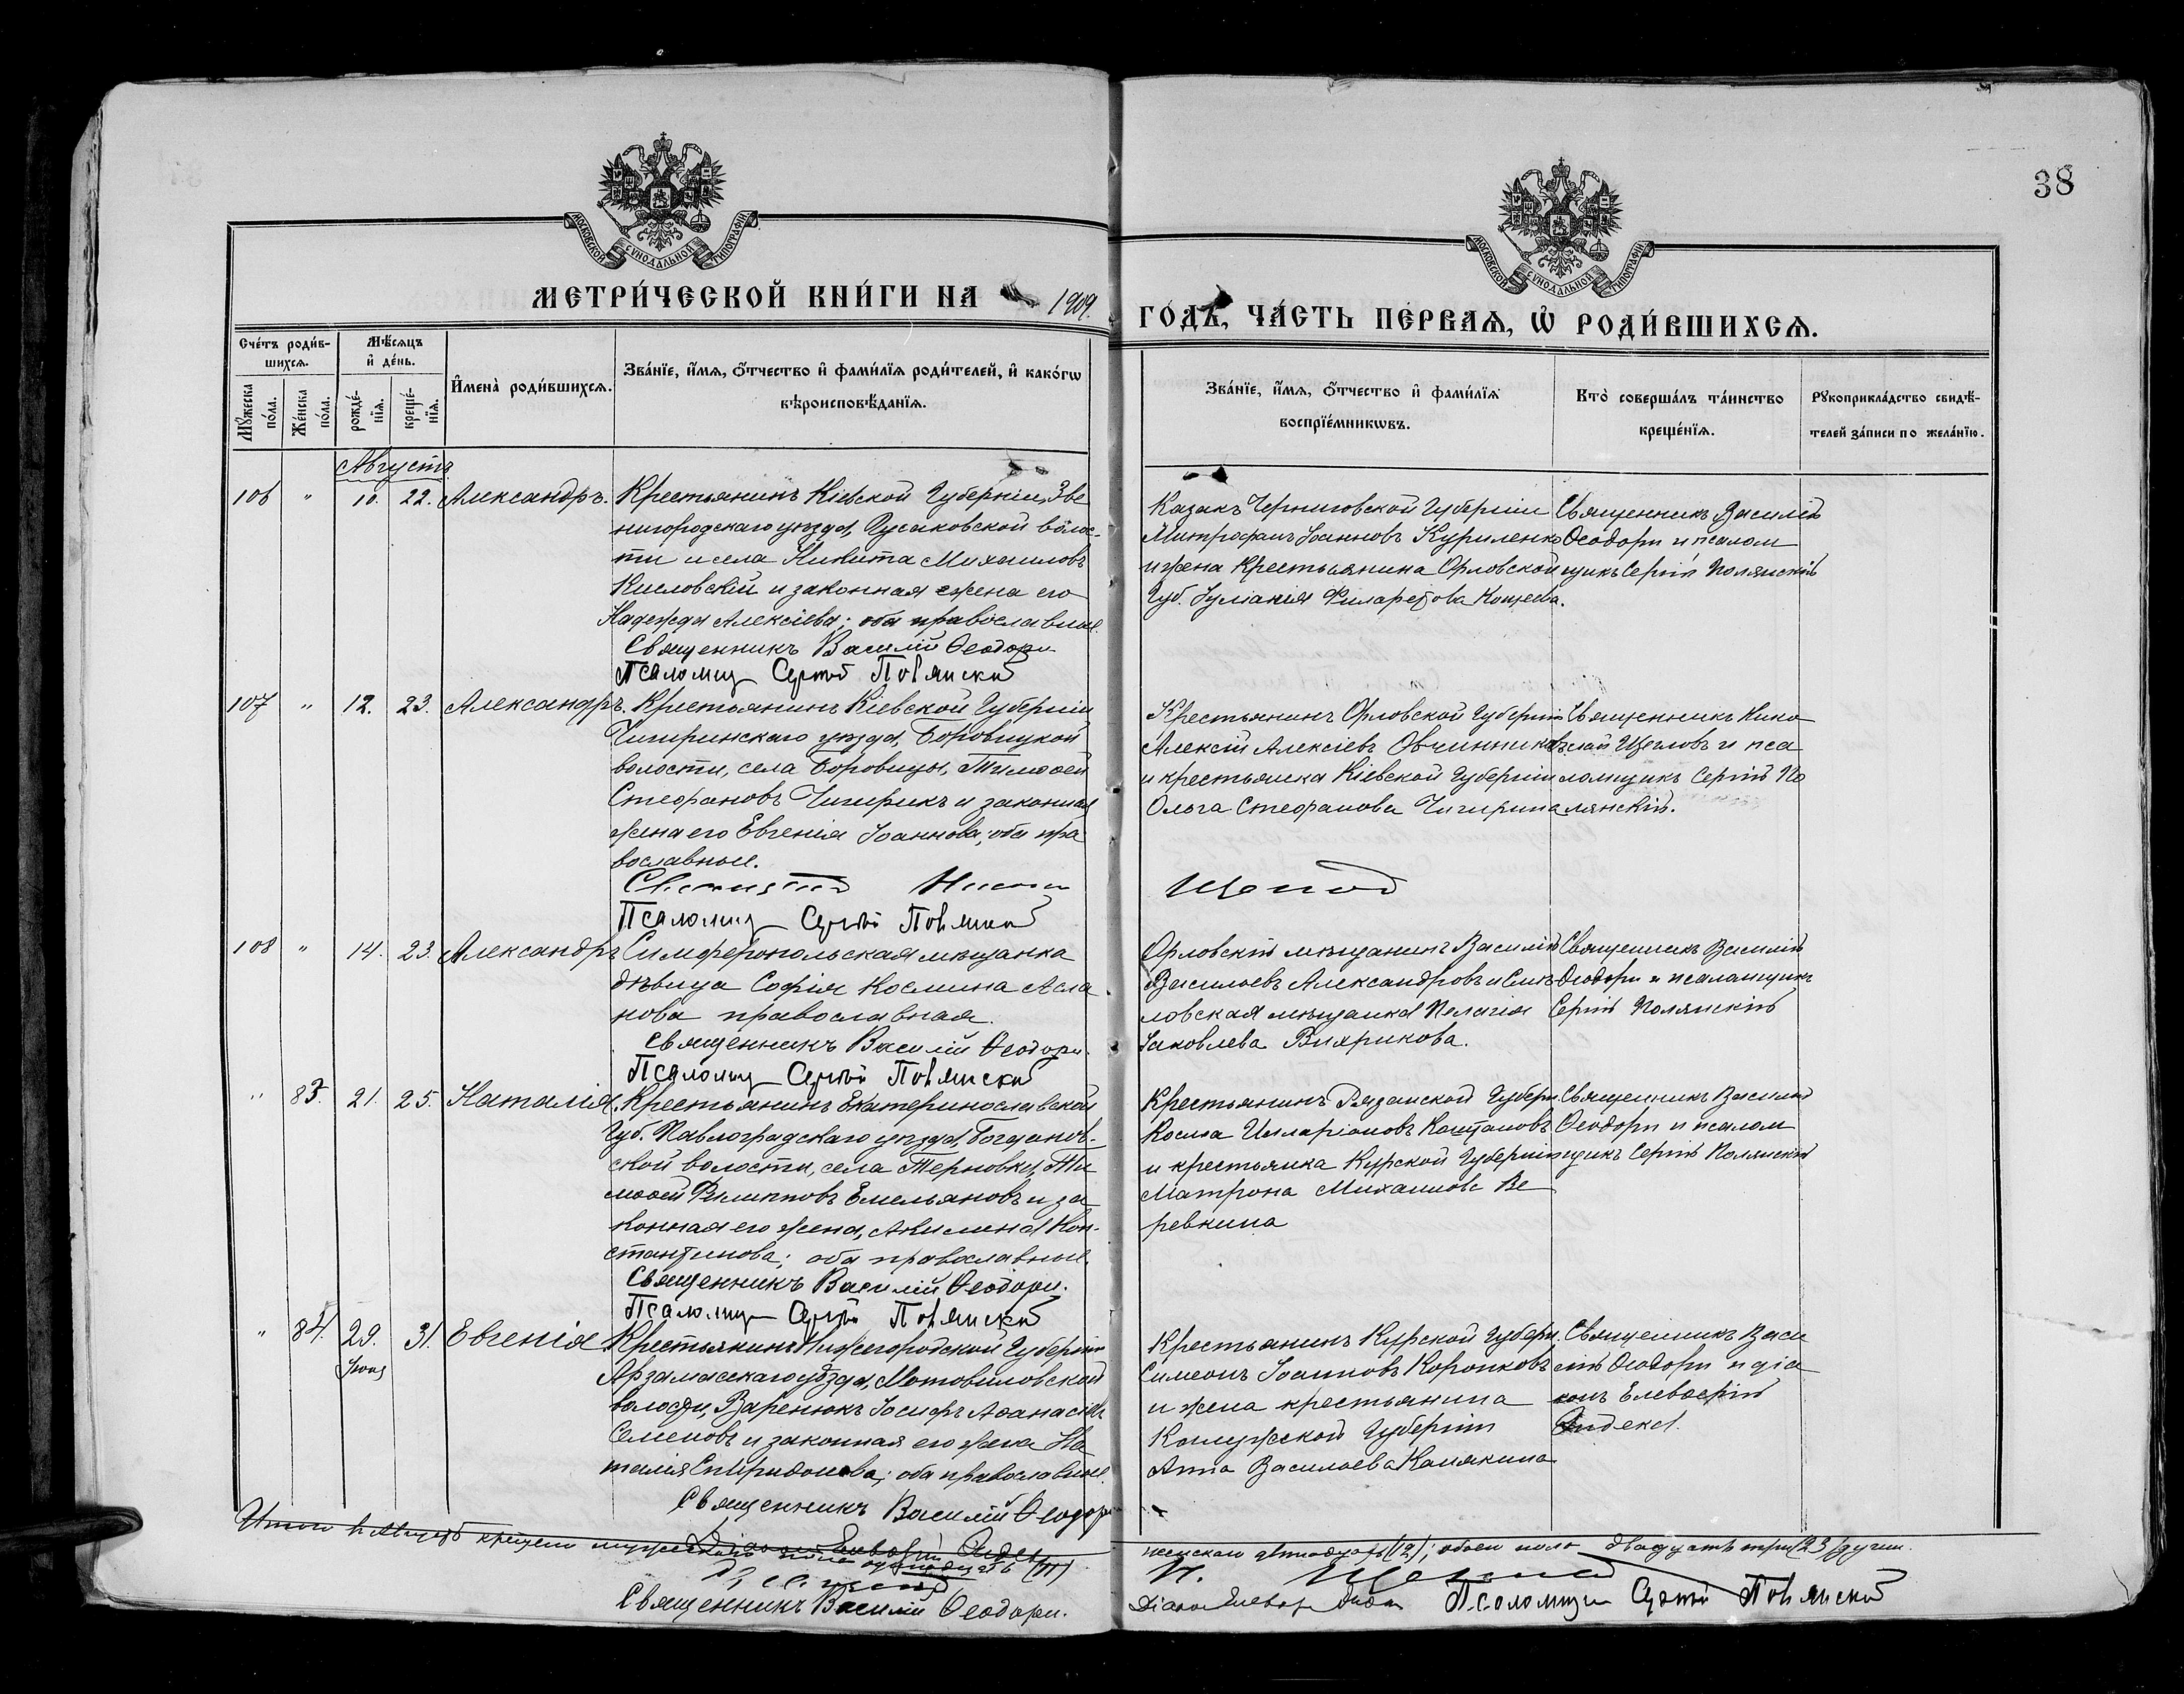 38
МОСКОВСКОЙ СѴНОДАЛЬНОЙ ТИПОГРАФІИ
МОСКОВСКОЙ СѴНОДАЛЬНОЙ ТИПОГРАФІИ
МЕТРИ́ЧЕСКОЙ КНИ́ГИ НА 1909.
ГОДЪ, ЧА́СТЬ ПЕ́РВАѦ, Ѡ҆ РОДИ́ВШИХСѦ.
Сче́тъ роди́в-
шихсѧ.
Мꙋ́жеска по́ла.
Же́нска по́ла.
Мѣ́сѧцъ
и҆ де́нь.
рожде́-нїѧ.
креще́-нїѧ.
И҆мена̀ роди́вшихсѧ.
Зва́нїе, и҆́мѧ, ѻ҆́тчество и҆ фами́лїѧ роди́телей, и҆ како́гѡ
вѣроисповѣ́данїѧ.
Зва́нїе, и҆́мѧ, ѻ҆́тчество и҆ фами́лїѧ
воспрїе́мникѡвъ.
Кто̀ соверша́лъ та́инство
креще́нїѧ.
Рꙋкоприкла́дство свидѣ́-
телей за́писи по жела́нїю.
Августъ
106 " 10. 22. Александръ.
Крестьянинъ Кіевской Губерніи, Зве
нигородскаго уѣзда, Гусаковской волос-
ти и села Никита Михаиловъ
Кисловскій и законная жена его
Надежда Алексіева; оба православные.
Священникъ Василій Ѳеодори
Псаломщ Сергій Полянскій
Казакъ Черниговской Губерніи
Митрофанъ Іоанновъ Куриленко
и жена Крестьянина Орловской
Губ. Іуліанія Филаретова Кощеева.
Священникъ Василій
Ѳеодори и псалом
щикъ Сергій Полянскій
107 " 12. 23. Александръ.
Крестьянинъ Кіевской Губерніи
Чигиринскаго уѣзда, Боровицкой
волости, села Боровицы, Тимоѳей
Стефановъ Чигирикъ и законная
жена его Евгенія Іоаннова; оба пра
вославные.
Священникъ Николай Щегловъ
Псаломщ Сергій Полянскій
Крестьянинъ Орловской Губерніи
Алексій Алексіевъ Овчинниковъ
и крестьянка Кіевской Губерніи
Ольга Стефанова Чигирина
Священникъ Нико
лай Щегловъ и пса
ломщикъ Сергій По
лянскій.
108 " 14. 23. Александръ
Симферопольская мѣщанка
дѣвица Софія Косьмина Асла
нова православная.
Священникъ Василій Ѳеодори.
Псаломщ Сергій Полянскій
Орловскій мѣщанинъ Василій
Васильевъ Александровъ и Сим
ловская мѣщанка Пелагія
Іаковлева Вихрикова.
Священникъ Василій
Ѳеодори и псаломщикъ
Сергій Полянскій
" 83. 21. 25. Наталія.
Крестьянинъ Екатеринославской
Губ. Павлоградскаго уѣзда, Богданов-
ской волости, села Терновки, Ти
моѳей Филиповъ Емельяновъ и за
конная его жена, Акилина Кон-
стантинова; оба православные.
Священникъ Василій Ѳеодори.
Псаломщ Сергій Полянскій
Крестьянинъ Рязанской Губерн.
Косма Иларіоновъ Каштановъ
и крестьянка Курской Губерніи
Матрона Михаилова Ве
ревкина
Священникъ Василій
Ѳеодори и псалом
щикъ Сергій Полянскій
" 84. 29. 31. Евгенія
Іюня
Крестьянинъ Нижегородской Губерніи
Арзамасскаго уѣзда, Мотовиловской
волости, Іосифъ Аѳанасіевъ
Семеновъ и законная его жена На
талія Спиридонова; оба православные.
Священникъ Василій Ѳеодори
Діаконъ Елевѳерій Андекс
Крестьянинъ Курской Губерн.
Симеонъ Іоанновъ Коропковъ
и жена крестьянина
Калужской Губерніи
Анна Васильева Канякина
Священникъ Васи
лій Ѳеодори и діа
конъ Елевѳерій
Андекс.
Итого в Августѣ крещено мужескаго пола одинадцать (11)
женскаго двенадцать (12); обоего пола двадцать три (23) души.
Н. Щегловъ
Священникъ Василій Ѳеодори.
Діаконъ Елевѳер Псаломщи Сергій Полянскій